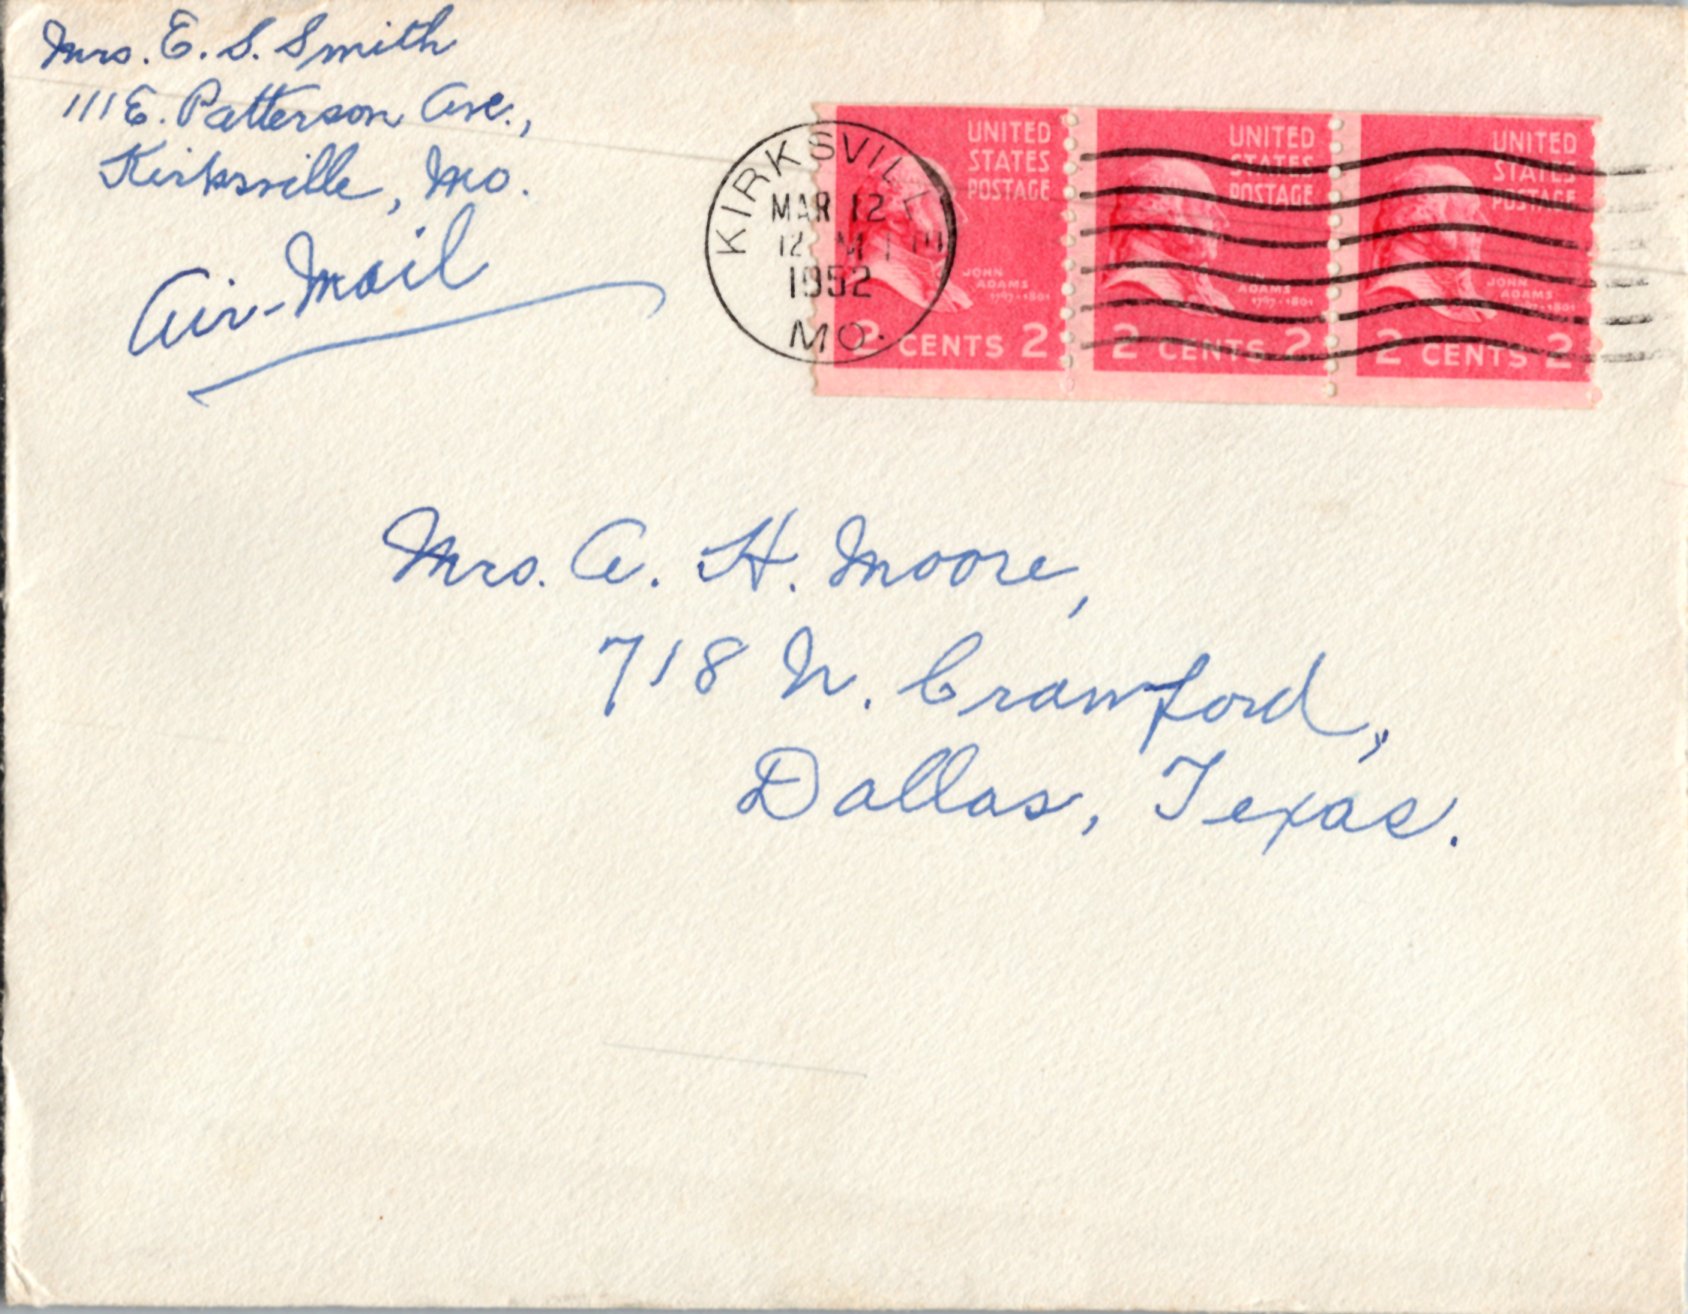 Mrs. E. S. Smith
111 E. Patterson Ave.,
Kirksville, Mo.
Air-Mail
KIRKSVILLE
MAR 12
12 M
1952
MO.
UNITED
STATES
POSTAGE
JOHN
ADAMS
1797-1801
2 CENTS 2
UNITED
STATES
POSTAGE
JOHN
ADAMS
1797-1801
2 CENTS 2
UNITED
STATES
POSTAGE
JOHN
ADAMS
1797-1801
2 CENTS 2
Mrs. A. H. Moore,
718 N. Crawford,
Dallas, Texas.